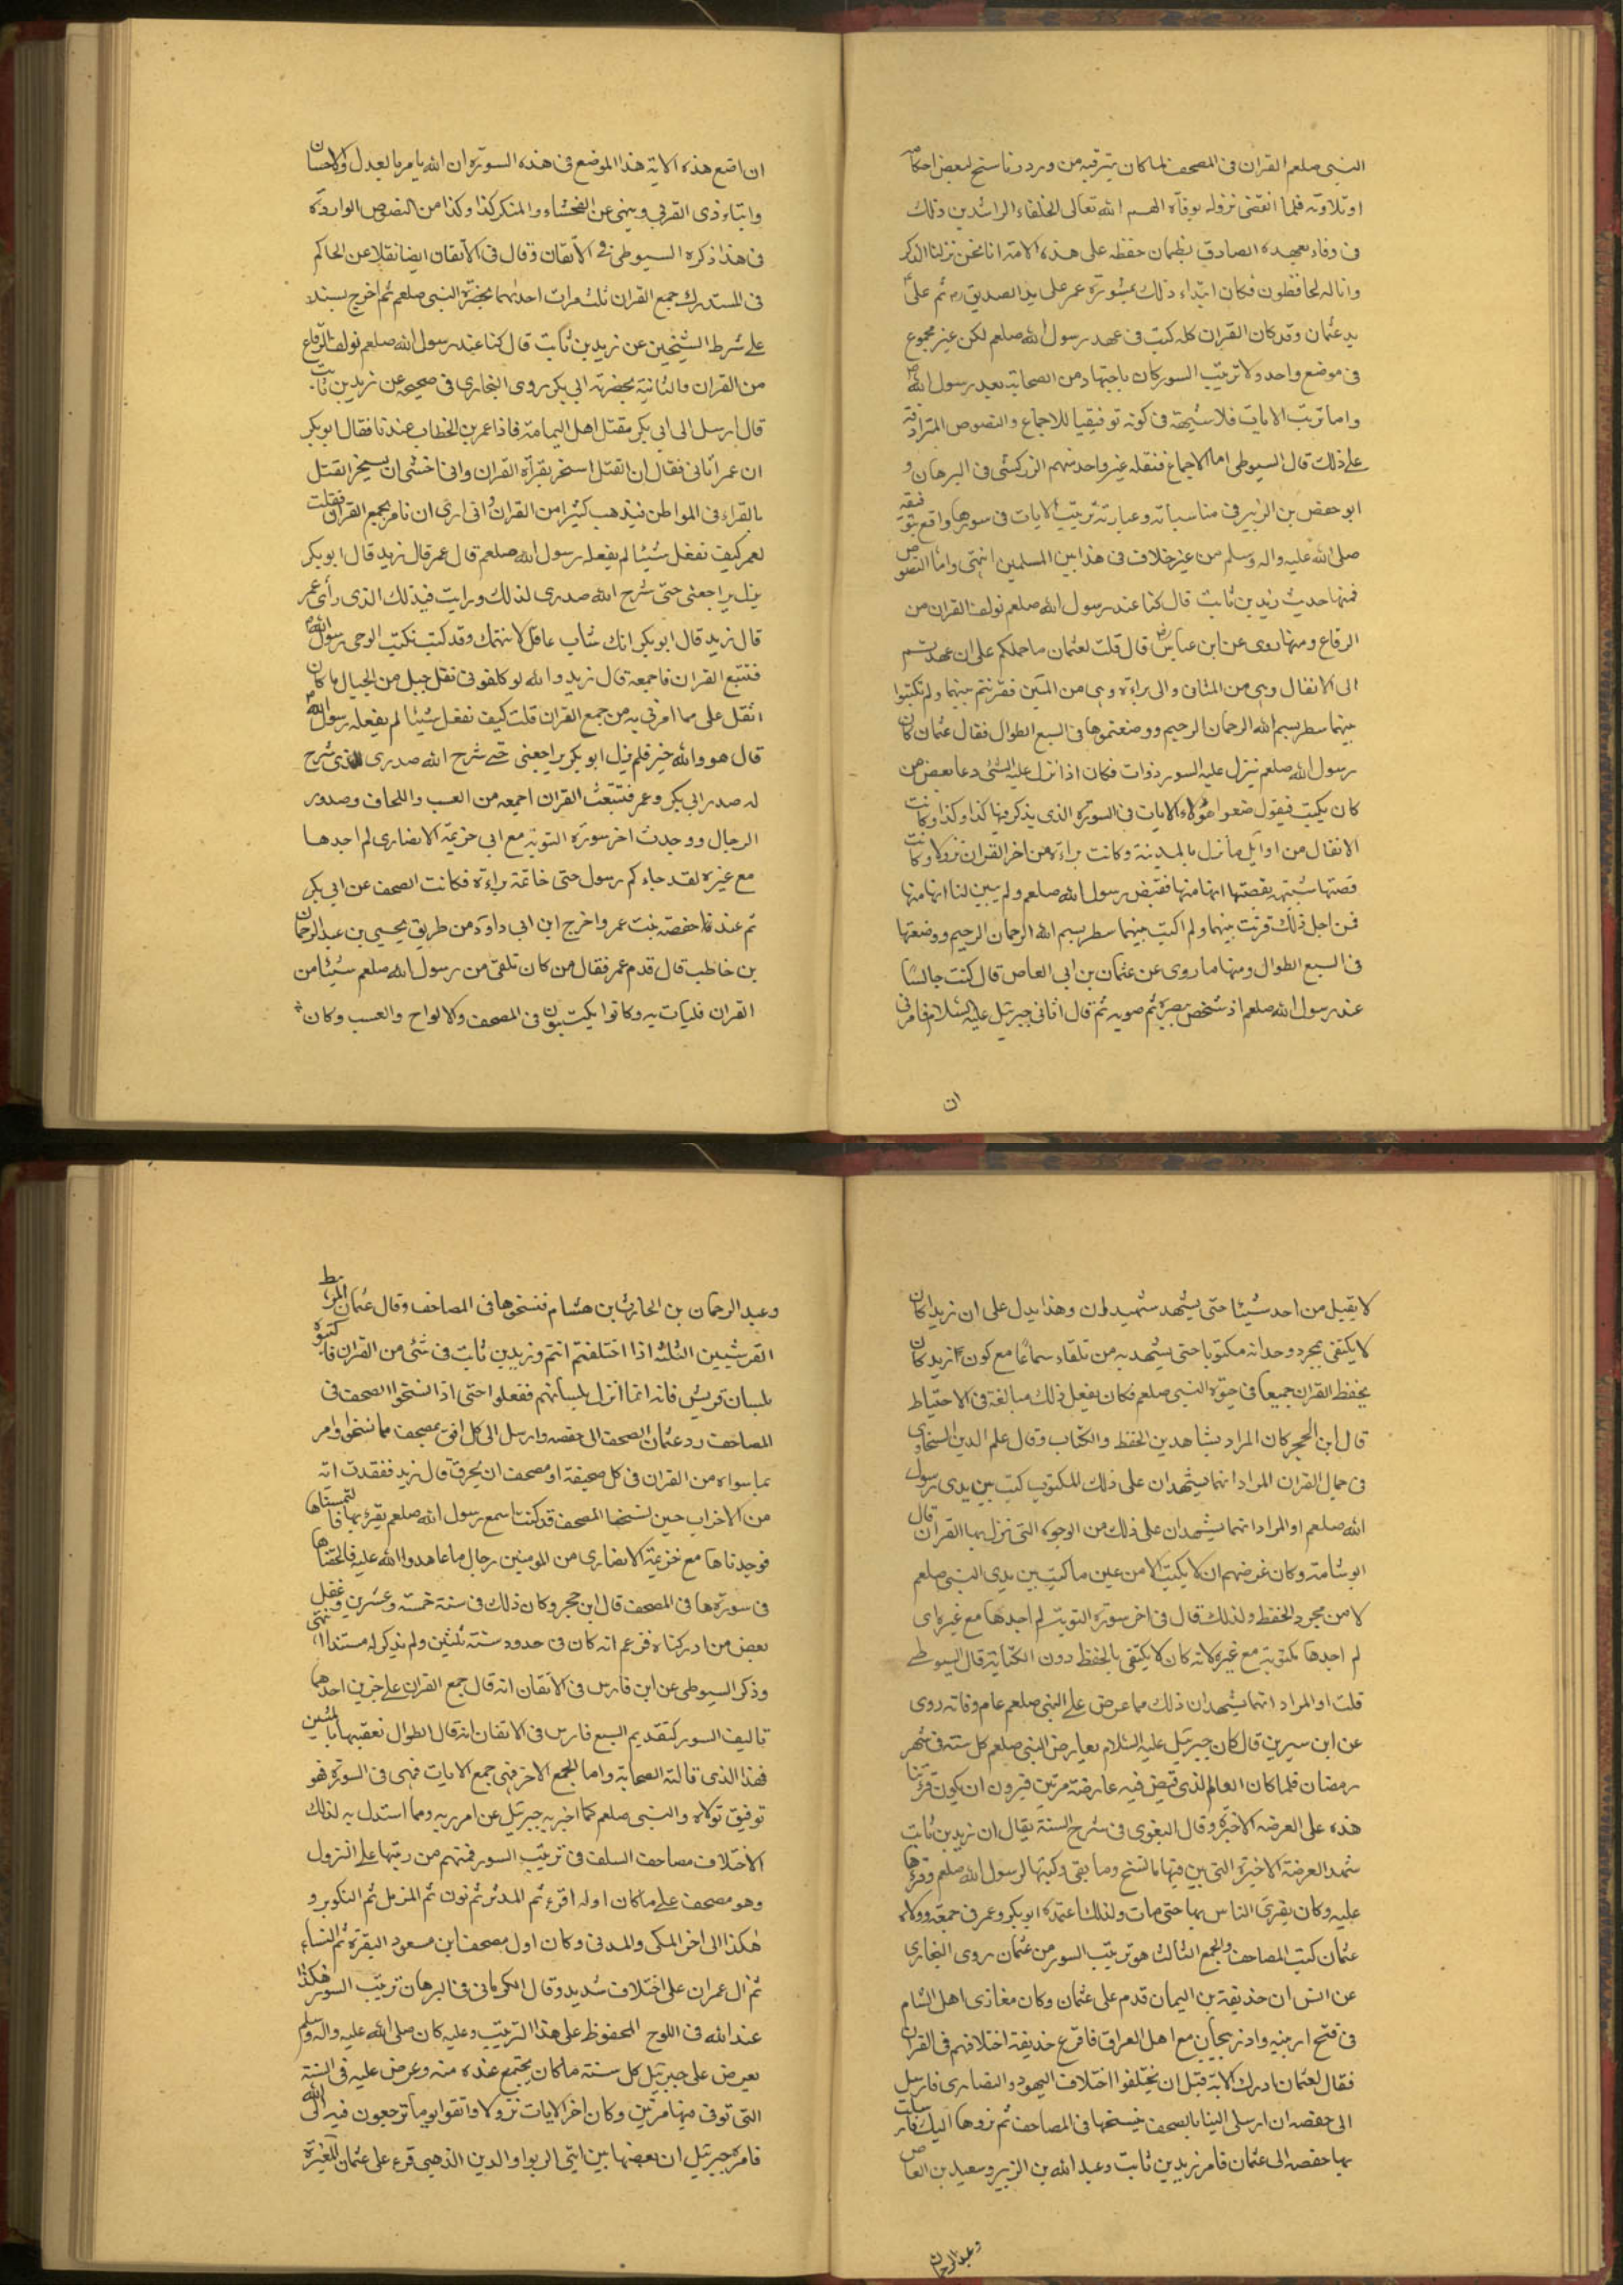 النبى صلعم القران فى المصحف لما كان يترقبه من ورود ناسخ لبعض احكامه
او تلاوته فلما انقضى نزوله بوفاته الهم الله تعالى الخلفاء الراشدين ذلك
فى وفاء بعهده الصادق بضمان حفظه على هذه الامة انا نحن نزلنا الذكر
وانا له لحافظون فكان ابتداء ذلك بمشورة عمر على يد الصديق رض ثم على
يد عثمان وقد كان القران كله كتب فى عهد رسول الله صلعم لكن غير مجموع
فى موضع واحد ولا ترتيب السور كان باجتهاد من الصحابة بعد رسول الله ص
واما ترتيب الايات فلا شبهة فى كونه توفيقيا للاجماع والنصوص المترادفة
على ذلك قال السيوطى اما الاجماع فنقله غير واحد منهم الزركشى فى البرهان و
ابو حفص بن الزبير فى مناسباته وعبارته ترتيب الايات فى سورها واقع بتوقيفه
صلى الله عليه واله وسلم من غير خلاف فى هذا بين المسلمين انتهى واما النصوص
فمنها حديث زيد بن ثابت قال كنا عند رسول الله صلعم نولف القران من
الرقاع ومنها روى عن ابن عباس رض قال قلت لعثمان ما حملكم على ان عمدتم
الى الانفال وهى من المثانى والى براءة وهى من المئين فقرنتم بينهما ولم تكتبوا
بينهما سطر بسم الله الرحمان الرحيم ووضعتموها فى السبع الطوال فقال عثمان كان
رسول الله صلعم تنزل عليه السور ذوات فكان اذا نزل عليه الشئ دعا بعض من
كان يكتب فيقول ضعوا هؤلاء الايات فى السورة الذى يذكر فيها كذا وكذا وكانت
الانفال من اوايل ما نزل بالمدينة وكانت براءة من اخر القران نزولا وكانت
قصتها شبيهة بقصتها انها منها فقبض رسول الله صلعم ولم يبين لنا انها منها
فمن اجل ذلك قرنت بينهما ولم اكتب بينهما سطر بسم الله الرحمان الرحيم ووضعتها
فى السبع الطوال ومنها ما روى عن عثمان بن ابى العاص قال كنت جالسا
عند رسول الله صلعم اذ شخص ببصره ثم صوبه ثم قال اتانى جبرئيل عليه السلام فامرنى
ان
ان اضع هذه الاية هذا الموضع فى هذه السورة ان الله يامر بالعدل والاحسان
وايتاء ذى القربى وينهى عن الفحشاء والمنكر كذا وكذا من النصوص الواردة
فى هذا ذكره السيوطى فى الاتقان وقال فى الاتقان ايضا نقلا عن الحاكم
فى المستدرك جمع القران ثلث مرات احدیهما بحضرة النبى صلعم ثم اخرج بسند
على شرط الشيخين عن زيد بن ثابت قال كنا عند رسول الله صلعم نولف الرقاع
من القران والثانية بحضرة ابى بكر روى البخارى فى صحيحه عن زيد بن ثابت
قال ارسل الى ابى بكر مقتل اهل اليمامة فاذا عمر بن الخطاب عنده فقال ابو بكر
ان عمر اتانى فقال ان القتل استحر بقراء القران وانا خشى ان يستحر القتل
بالقراء فى المواطن فيذهب كثير من القران وانى ارى ان تامر بجمع القران فقلت
لعمر كيف نفعل شيئا لم يفعله رسول الله صلعم قال عمر قال زيد قال ابو بكر
يزل يراجعنى حتى شرح الله صدرى لذلك ورايت فى ذلك الذى رأى عمر
قال زيد قال ابو بكر انك شاب عاقل لا نتهمك وقد كتب تكتب الوحى رسول الله ص
فتتبع القران فاجمعه قال زيد والله لو كلفونى نقل جبل من الجبال ما كان
اثقل على مما امرنى به من جمع القران قلت كيف نفعل شيئا لم يفعله رسول الله ص
قال هو والله خير فلم يزل ابو بكر يراجعنى حتى شرح الله صدرى للذى شرح
له صدر ابى بكر وعمر فتتبعت القران اجمعه من العسب واللخاف وصدور
الرجال ووجدت اخر سورة التوبة مع ابى خزيمة الانصارى لم اجدها
مع غيره لقد جاءكم رسول حتى خاتمة براءة فكانت الصحف عن ابى بكر
ثم عند حفصة بنت عمر واخرج ابن ابى داود من طريق يحيى بن عبد الرحمان
بن خاطب قال قدم عمر فقال من كان تلقى من رسول الله صلعم شيئا من
القران فليات به وكانوا يكتبون فى المصحف والالواح والعسب وكان
لا يقبل من احد شيئا حتى يشهد شهيدان وهذا يدل على ان زيدا كان
لا يكتفى بمجرد وجدانه مكتوبا حتى يشهد به من تلقاه سماعا مع كون زيد كان
يحفظ القران جميعا فى حيوة النبى صلعم فكان يفعل ذلك مبالغة فى الاحتياط
قال ابن الحجر كان المراد بشاهدين الحفظ والكتاب وقال علم الدين السخاوى
فى جمال القران المراد انهما يشهدان على ذلك المكتوب كتب بين يدى رسول
الله صلعم او المراد انهما يشهدان على ذلك من الوجوه التى نزل بها القران قال
ابو شامة وكان غرضهم ان لا يكتب الا من عين ما كتب بين يدى النبى صلعم
لا من مجرد الحفظ ولذلك قال فى اخر سورة التوبة لم اجدها مع غيره اى
لم اجدها مكتوبة مع غيره لانه كان لا يكتفى بالحفظ دون الكتابة قال السيوطى
قلت او المراد انهما يشهدان ذلك مما عرض على النبى صلعم عام وفاته روى
عن ابن سيرين قال كان جبرئيل عليه السلام يعارض النبى صلعم كل سنة فى شهر
رمضان فلما كان العام الذى قبض فيه عارضه مرتين فيرون ان يكون قرئتنا
هذه على العرضه الاخيرة وقال البغوى فى شرح السنة يقال ان زيد بن ثابت
شهد العرضة الاخيرة التى بين فيها ما نسخ وما بقى وكتبها لرسول الله صلعم وقرءها
عليه وكان يقرئ الناس بها حتى مات ولذلك اعتمده ابو بكر وعمر فى جمعه وولاه
عثمان كتب المصاحف والجمع الثالث هو ترتيب السور من عثمان روى البخارى
عن انس ان حذيفة بن اليمان قدم على عثمان وكان مغازى اهل الشام
فى فتح ارمنيه واذربيجان مع اهل العراق فافزع حذيفة اختلافهم فى القران
فقال لعثمان ادرك الامة قبل ان يختلفوا اختلاف اليهود والنصارى فارسل
الى حفصه ان ارسلى الينا بالصحف ننسخها فى المصاحف ثم نردها اليك فارسلت
بها حفصه الى عثمان فامر زيد بن ثابت وعبد الله بن الزبير وسعيد بن العاص
وعبد الرحمان
وعبد الرحمان بن الحارث بن هشام فنسخوها فى المصاحف وقال عثمان للرهط
القرشيين الثلثه اذا اختلفتم انتم وزيد بن ثابت فى شئ من القران فاكتبوه
بلسان قريش فانه انما انزل بلسانهم ففعلوا حتى اذا نسخوا الصحف فى
المصاحف رد عثمان الصحف الى حفصه وارسل الى كل افق بمصحف مما نسخوا وامر
بما سواه من القران فى كل صحيفة او مصحف ان يحرق قال زيد ففقدت اية
من الاحزاب حين نسخنا المصحف قد كنت اسمع رسول الله صلعم يقرء بها فالتمسناها
فوجدناها مع خزيمة الانصارى من المومنين رجال ما عاهدوا الله عليه فالحقناها
فى سورتها فى المصحف قال ابن حجر وكان ذلك فى سنة خمسة وعشرين وغفل
بعض من ادركناه فزعم انه كان فى حدود سنة ثلثين ولم يذكر له مستندا انتهى
وذكر السيوطى عن ابن فارس فى الاتقان انه قال جمع القران على ضربين احدهما
تاليف السور كتقديم السبع فارس فى الاتقان انه قال الطوال تعقبها بالمئين
فهذا الذى قالته الصحابة واما الجمع الاخر فهى جمع الايات فهى فى السورة فهو
توفيق تولاه والنبى صلعم كما اخبر به جبرئيل عن امر ربه ومما استدل به لذلك
الاختلاف مصاحف السلف فى ترتيب السور فمنهم من رتبها على النزول
وهو مصحف على ما كان اوله اقرء ثم المدثر ثم نون ثم المزمل ثم التكوير و
هكذا الى اخر المكى والمدنى وكان اول مصحف ابن مسعود البقرة ثم النساء
ثم ال عمران على اختلاف شديد وقال الكرمانى فى البرهان ترتيب السور هكذا
عند الله فى اللوح المحفوظ على هذا الترتيب وعليه كان صلى الله عليه واله وسلم
يعرض على جبرئيل كل سنة ما كان يجتمع عنده منه وعرض عليه فى السنة
التى توفى فيها مرتين وكان اخر الايات نزولا واتقوا يوما ترجعون فيه الى الله
فامره جبرئيل ان يضعها بين ايتى الربوا والدين الذهبى قرء على عثمان المغيرة